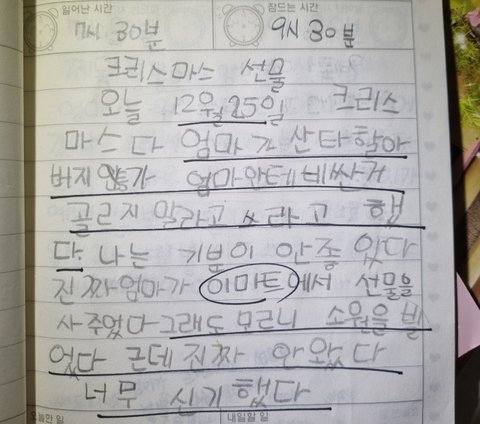 일어난 시간 잠드는 시간
7시 30분 9시 30분
크리스마스 선물
오늘 12월 25일 크리스
마스다 엄마가 산타할아
버지 엄마안테 비싼거
골르지 말라고 쓰라고 했
다. 나는 기분이 안좋았다
진짜엄마가 이마트에서 선물을
사주었다 그래도 모르니 소원을 빌
었다 근데 진짜 안왔다
너무 신기했다
오늘한 일 내일할 일